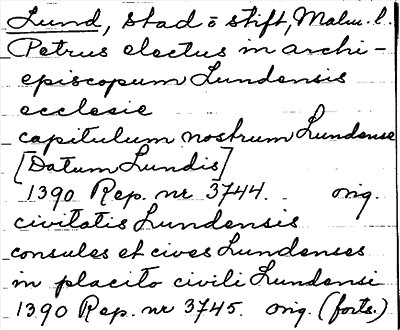 Lund, stad o stift, Malm. l.
Petrus electus in archi-
episcopum Lundensis
ecclesie
capitulum nostrum Lundense
[Datum Lundis]
1390 Rep. nr 3744. orig.
civitatis Lundensis
consules et cives Lundenses
in placito civili Lundensi
1390 Rep. nr 3745. orig. (forts.)